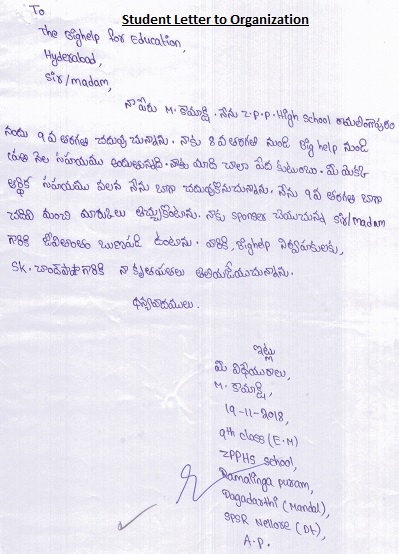 Student Letter to Organization
To
The Bighelp for Education,
Hyderabad,
Sir/madam,
నా పేరు M. కామాక్షి. నేను Z.P.P. High School రామలింగాపురం
నందు 9 వ తరగతి చదువుచున్నాను. నాకు 8 వ తరగతి నుండి Big help నుండి
ప్రతి నెల సహాయము అందుతున్నది. నాకు మాది చాలా పేద కుటుంబం. మీ యొక్క
ఆర్థిక సహాయము వలన నేను బాగా చదువుకొనుచున్నాను. నేను 9 వ తరగతి బాగా
చదివి మంచి మార్కులు తెచ్చుకొంటాను. నాకు sponser చేయుచున్న sir/madam
గారికి జీవితాంతం ఋణపడి ఉంటాను. వారికి, Bighelp నిర్వాహకులకు,
SK. చాంద్ పాషా గారికి నా కృతజ్ఞతలు తెలియజేయుచున్నాను.
ధన్యవాదములు.
ఇట్లు
మీ విధేయురాలు,
M. కామాక్షి,
19-11-2018,
9th class (E.M)
ZPPHS School,
Ramalinga puram,
Dagadarthi (Mandal),
SPSR Nellore (Dt),
A.P.